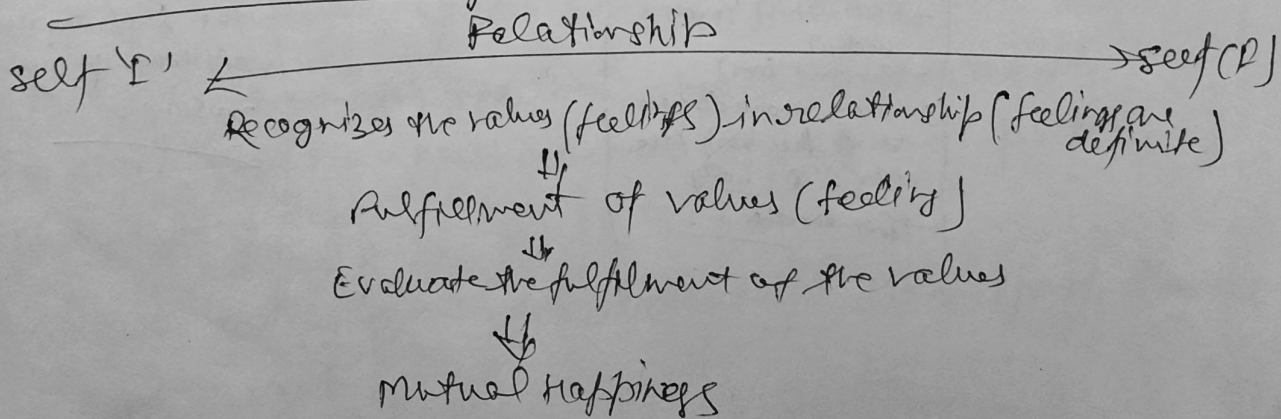 Relationship
self 'I' self (I)
Recognizes the values (feelings) in relationship (feelings are
definite)
Fulfillment of values (feeling)
Evaluate the fulfilment of the values
Mutual Happiness